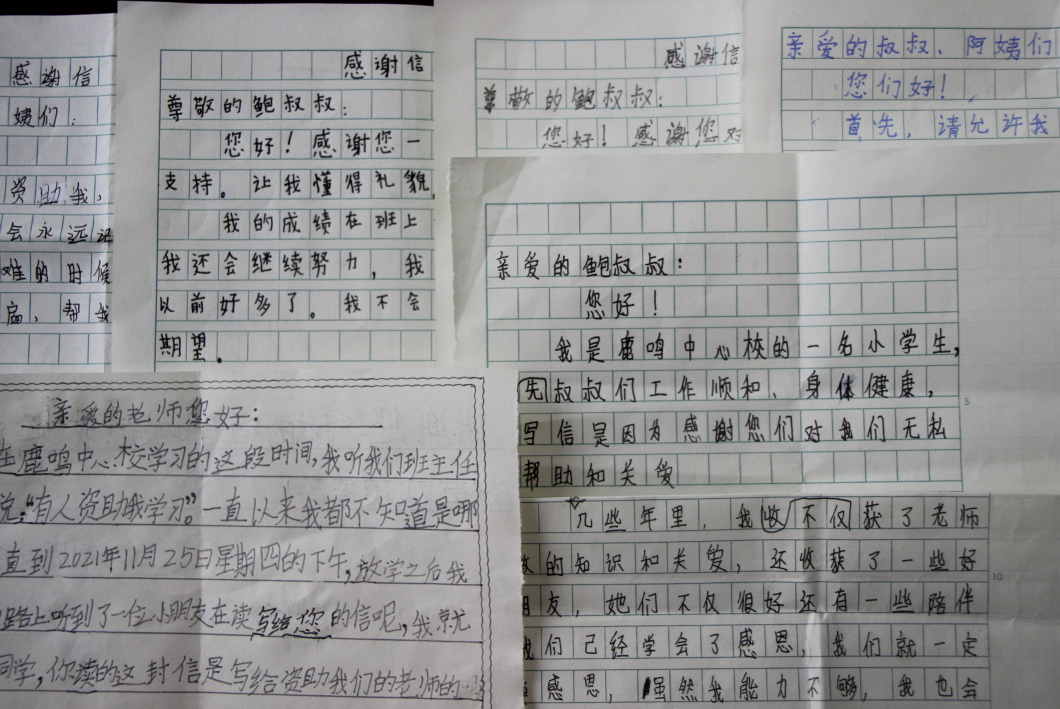 感谢信
姨们：
资助我，
会永远记
难的时候
启，帮我
感谢信
尊敬的鲍叔叔：
您好！感谢您一
支持。让我懂得礼貌，
我的成绩在班上
我还会继续努力，我
以前好多了。我不会
期望。
感谢信
尊敬的鲍叔叔：
您好！感谢您对
亲爱的叔叔、阿姨们
您们好！
首先，请允许我
亲爱的鲍叔叔：
您好！
我是鹿鸣中心校的一名小学生，
先叔叔们工作顺和、身体健康，
写信是因为感谢您们对我们无私
帮助和关爱
几些年里，我收不仅获了老师
的知识和关爱，还收获了一些好
朋友，她们不仅很好还有一些陪伴
我们已经学会了感恩，我们就一定
感恩，虽然我能力不够，我也会
亲爱的老师您好：
在鹿鸣中心校学习的这段时间，我听我们班主任
说："有人资助我学习"。一直以来我都不知道是哪
直到2021年11月25日星期四的下午，放学之后我
路上听到了一位小朋友在读写给您的信呢，我就
同学，你读的这封信是写给资助我们的老师的